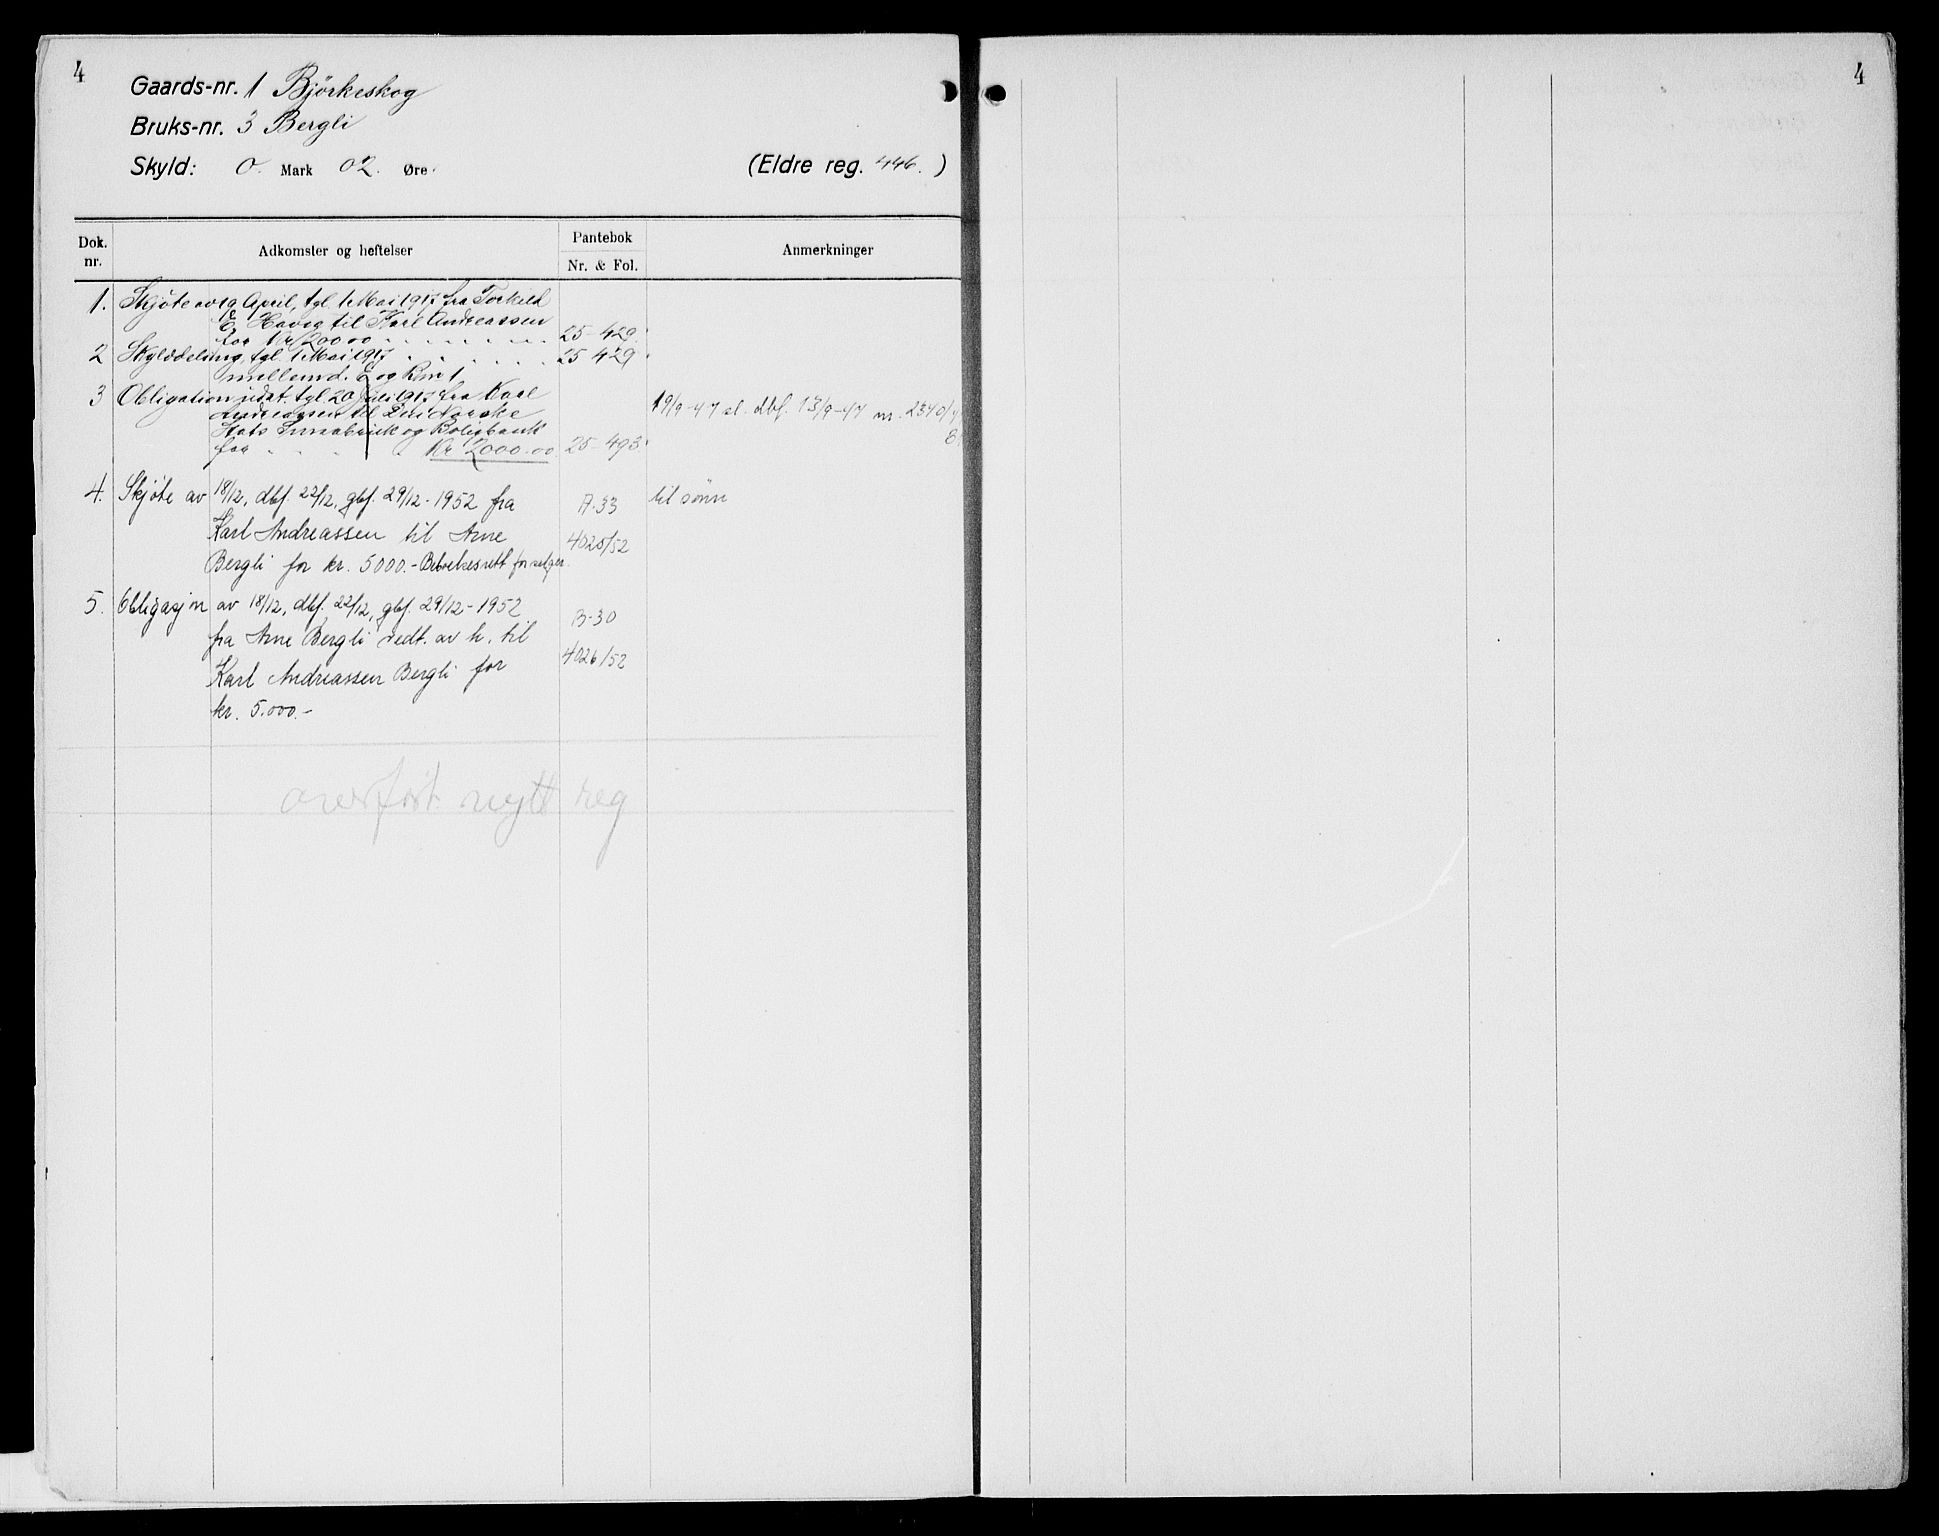 4
Gaards-nr. 1 Bjørkeskog
Bruks-nr. 3 Bergli
Skyld: 0. Mark 02. Øre
(Eldre reg. 446.)
Dok. nr.
Adkomster og heftelser
Pantebok
Nr. & Fol.
Anmerkninger
1. Skjøte av 19 April, tgl. 1 Mai 1917 fra Torkild
E. Haveg til Karl Andreassen
for Kr 200 00 25-429.
2 Skylddeling, tgl. 1 Mai 1917 25 429.
mellem d. E og Brn 1
3 Obligation udst. tgl. 20 1917 fra Karl
Andreassen til Den Norske 19/9-47 sl. dbf. 13/9-47 nr. 2340/4
Stats Smaabruk og Boligbank
for Kr 2000.00 25-493.
4. Skjøte av 18/12, dbf. 22/12, gbf. 29/12-1952 fra A-33 til sønn
Karl Andreassen til Arne 4025/52
Bergli for kr. 5000.- for selger.
5. Obligasjon av 18/12, dbf. 22/12, gbf. 29/12-1952 B-30
fra Arne Bergli vedt. av h. til
Karl Andreassen Bergli for 4026/52
kr. 5.000.-
overført nytt reg
4